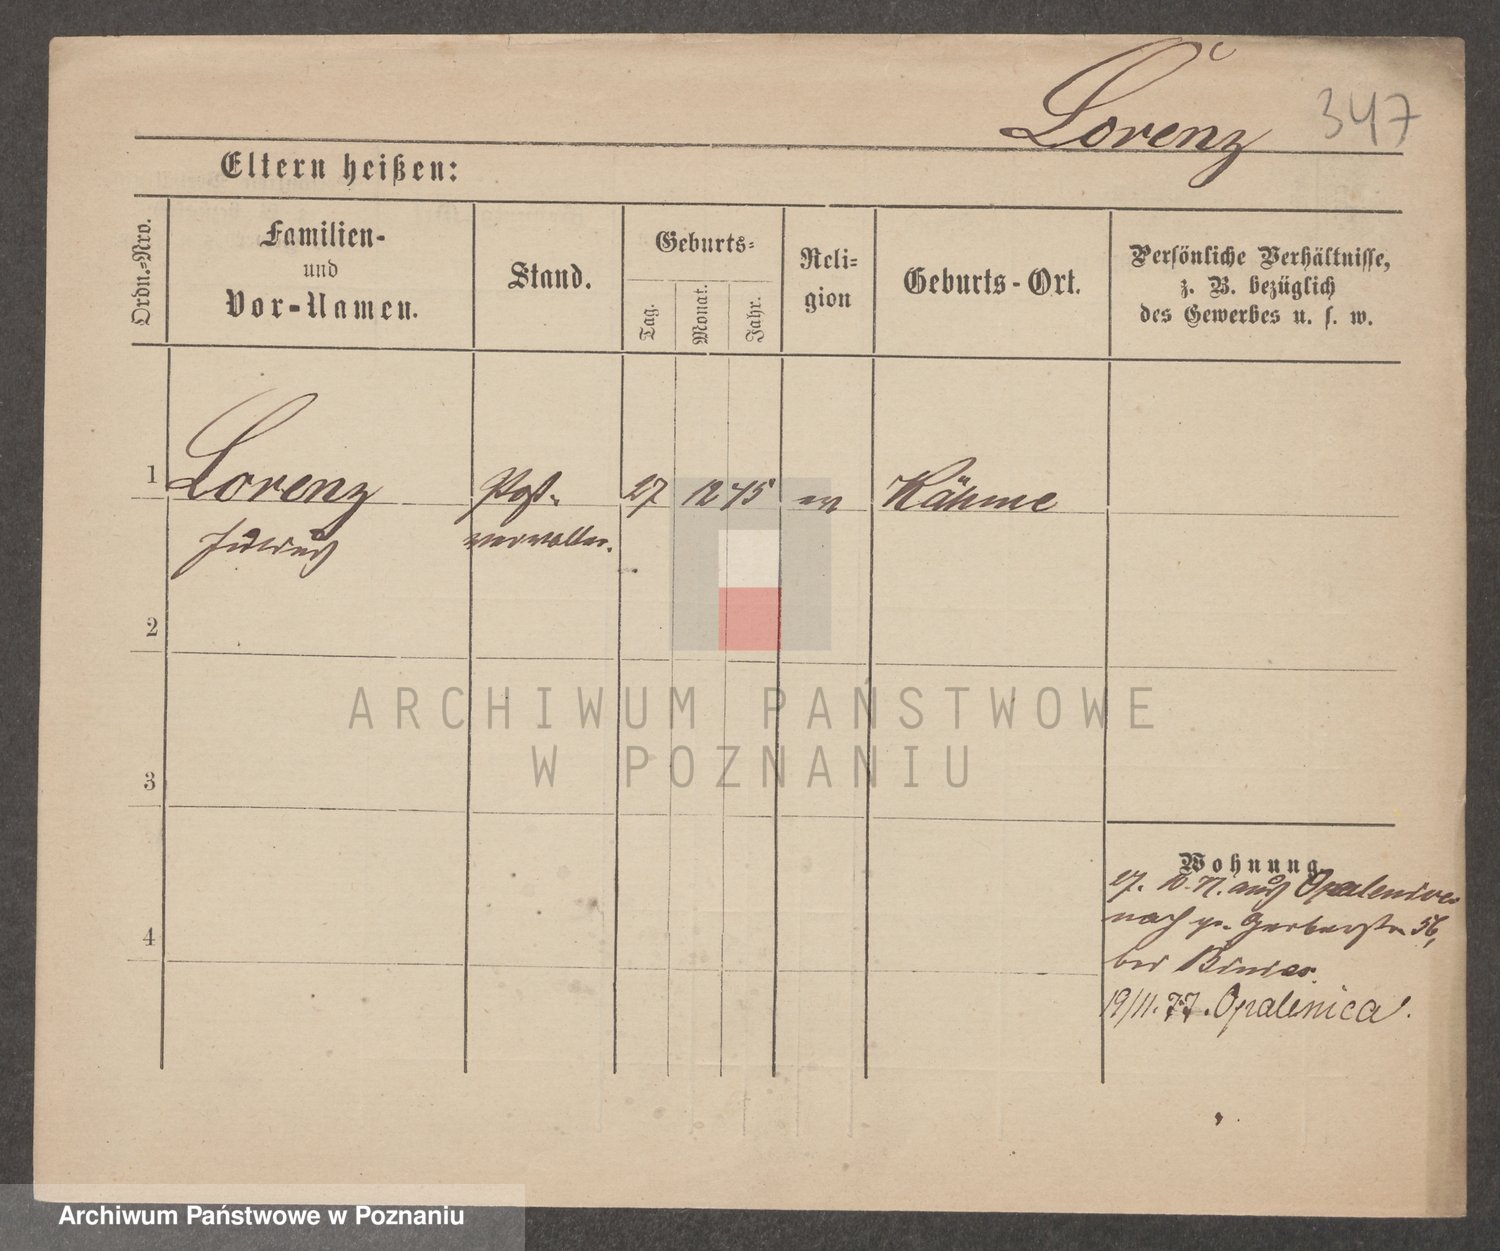 Lorenz 347
Eltern heißen:
Ordn.-Nro.
Familien-
und
Vor-Namen.
Stand.
Geburts-
Tag.
Monat.
Jahr.
Reli-
gion
Geburts-Ort.
Persönliche Verhältnisse,
z. B. bezüglich
des Gewerbes u. s. w.
1 Lorenz Post- 27 12 45 ev Kähme
verwalter.
2
3
4
Wohnung.
27. 10. 77. aus Opalenica
nach gr. Gerberstr 56,
bei
19/11. 77. Opalenica.
ARCHIWUM PAŃSTWOWE
W POZNANIU
Archiwum Państwowe w Poznaniu